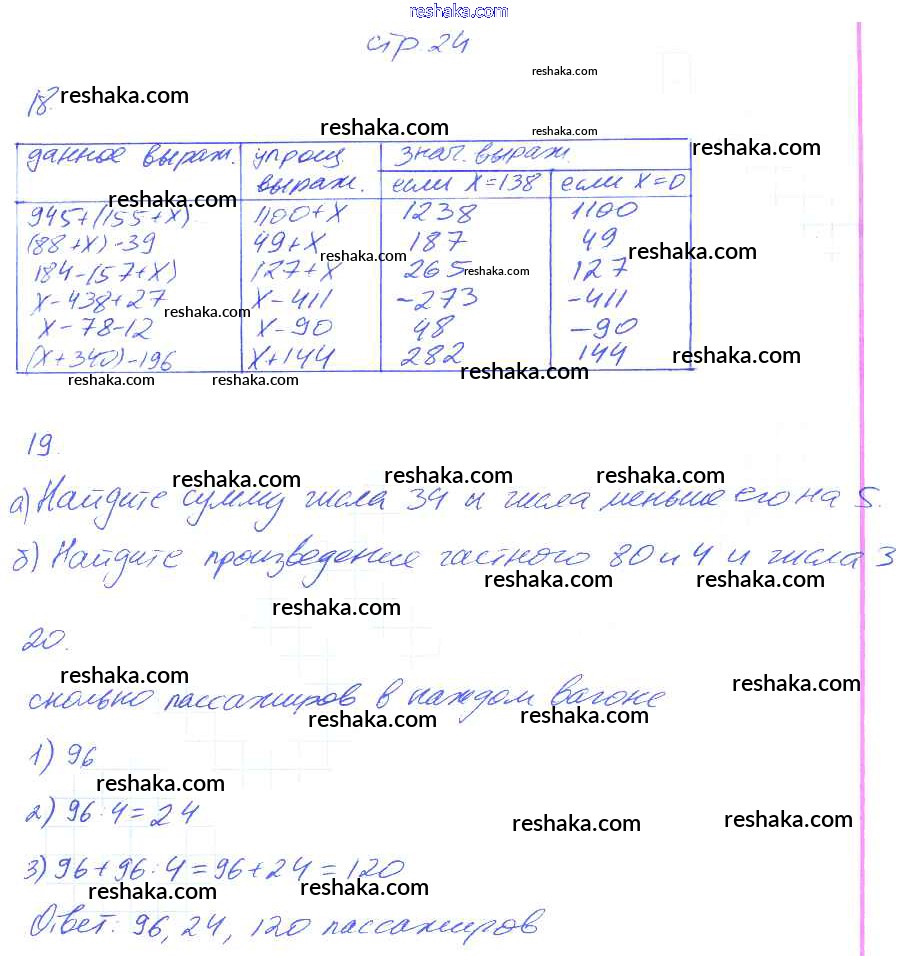 reshaka.com
стр 24
reshaka.com
18. reshaka.com
reshaka.com reshaka.com
reshaka.com
данное выраж. упрощ. знач. выраж.
выраж. если x=138 если x=0
reshaka.com
945+(155+x) 1100+x 1238 1100
(88+x)-39 49+x 187 49
reshaka.com reshaka.com
184-(57+x) 127+x 265 127
reshaka.com
x-438+27 x-411 -273 -411
reshaka.com
x-78-12 x-90 48 -90
(x+340)-196 x+144 282 144
reshaka.com
reshaka.com reshaka.com reshaka.com
19.
reshaka.com reshaka.com reshaka.com
а) Найдите сумму числа 34 и числа меньше его на 5.
б) Найдите произведение частного 80 и 4 и числа 3
reshaka.com reshaka.com
reshaka.com
20.
reshaka.com reshaka.com
сколько пассажиров в каждом вагоне
reshaka.com reshaka.com
1) 96
reshaka.com
2) 96:4=24
reshaka.com reshaka.com
3) 96+96:4=96+24=120
reshaka.com reshaka.com
Ответ: 96, 24, 120 пассажиров